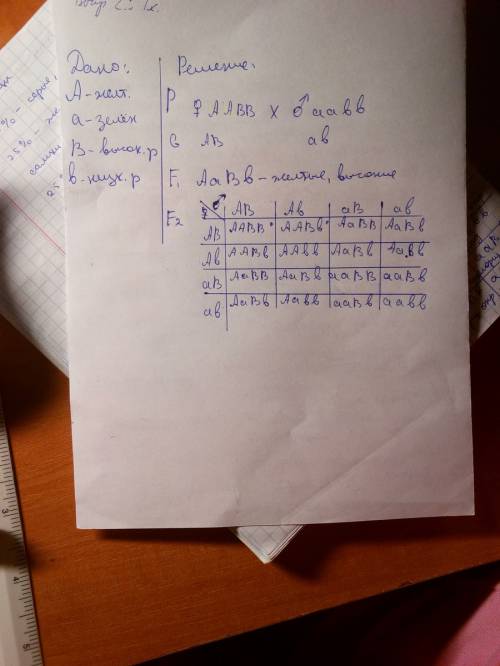 Дано:
А-желт.
а-зелён
В-высок. р
в-низк. р
Решение:
Р ♀ ААВВ х ♂ аавв
G АВ ав
F₁ АаВв - желтые, высокие
F₂ ♀ ♂ АВ Ав аВ ав
АВ ААВВ ААВв АаВВ АаВв
Ав ААВв ААвв АаВв Аавв
аВ АаВВ АаВв ааВВ ааВв
ав АаВв Аавв ааВв аавв